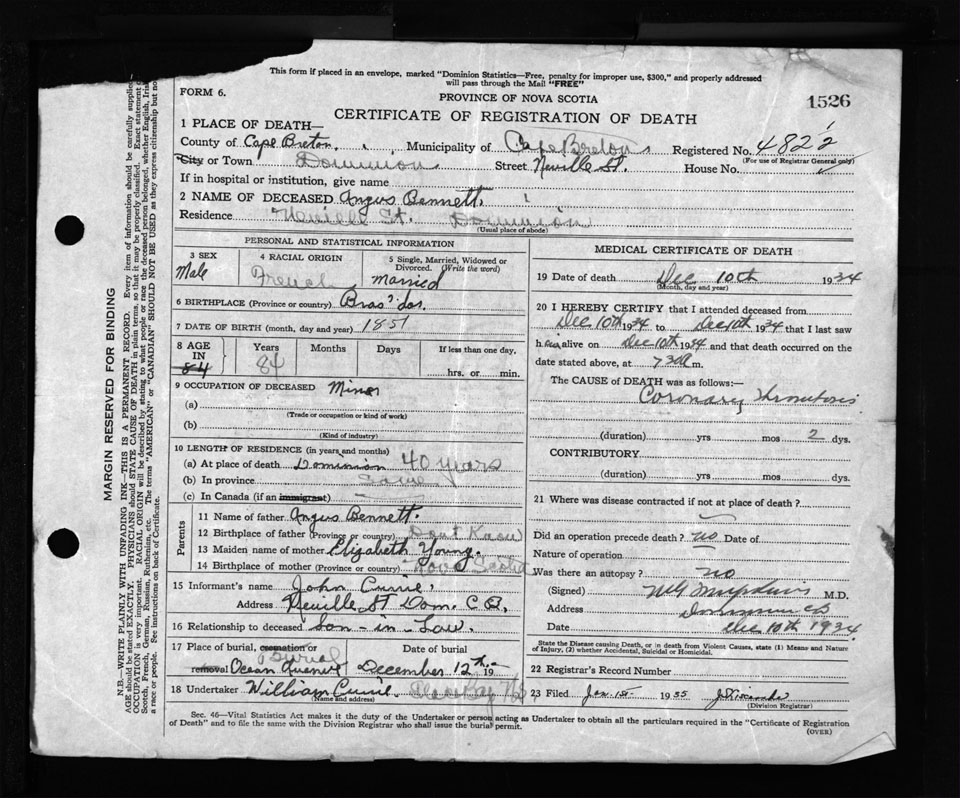 This form if placed in an envelope, marked "Dominion Statistics—Free, penalty for improper use, $300," and properly addressed
will pass through the Mail "FREE"
FORM 6.
PROVINCE OF NOVA SCOTIA
1526
CERTIFICATE OF REGISTRATION OF DEATH
1 PLACE OF DEATH—
County of Cape Breton. Municipality of Cape Breton Registered No. 4822
(For use of Registrar General only)
City or Town Dominion Street Neville St. House No.
If in hospital or institution, give name
2 NAME OF DECEASED Angus Bennett.
Residence Neville St. Dominion
(Usual place of abode)
PERSONAL AND STATISTICAL INFORMATION
3 SEX
Male
4 RACIAL ORIGIN
French
5 Single, Married, Widowed or
Divorced. (Write the word)
Married
6 BIRTHPLACE (Province or country) Bras 'dor.
7 DATE OF BIRTH (month, day and year) 1851
8 AGE
IN
84
Years
84
Months
Days
If less than one day,
hrs. or min.
9 OCCUPATION OF DECEASED Miner
(a)
(Trade or occupation or kind of work)
(b)
(Kind of industry)
10 LENGTH OF RESIDENCE (in years and months)
(a) At place of death Dominion 40 years
(b) In province Same
(c) In Canada (if an immigrant)
Parents
11 Name of father Angus Bennett.
12 Birthplace of father (Province or country) Don't Know
13 Maiden name of mother Elizabeth Young.
14 Birthplace of mother (Province or country) Nova Scotia
15 Informant's name John Currie.
Address Neville St Dom. C.B.
16 Relationship to deceased Son-in-Law.
17 Place of burial, cremation or Date of burial
Burial
removal Ocean December 12th 19
18 Undertaker William Currie.
(Name and address)
MEDICAL CERTIFICATE OF DEATH
19 Date of death Dec 10th 1934
(Month, day and year)
20 I HEREBY CERTIFY that I attended deceased from
Dec 10th 1934 to Dec 10th 1934 that I last saw
h im alive on Dec 10th 1934 and that death occurred on the
date stated above, at 7 30 m.
The CAUSE of DEATH was as follows:—
Coronary Thrombosis
(duration) yrs mos 2 dys.
CONTRIBUTORY
(duration) yrs mos dys.
21 Where was disease contracted if not at place of death?
Did an operation precede death? no Date of
Nature of operation
Was there an autopsy? no
(Signed) M.D.
Address Dominion C B
Date Dec 10th 1934
State the Disease causing Death, or in death from Violent Causes, state (1) Means and Nature
of Injury, (2) whether Accidental, Suicidal or Homicidal.
22 Registrar's Record Number
23 Filed Jan. 1st 1935
(Division Registrar)
Sec. 46—Vital Statistics Act makes it the duty of the Undertaker or person acting as Undertaker to obtain all the particulars required in the "Certificate of Registration
of Death" and to file the same with the Division Registrar who shall issue the burial permit.
(OVER)
MARGIN RESERVED FOR BINDING
N.B.—WRITE PLAINLY WITH UNFADING INK—THIS IS A PERMANENT RECORD. Every item of information should be carefully supplied
AGE should be stated EXACTLY. PHYSICIANS should STATE CAUSE OF DEATH in plain terms, so that it may be properly classified. Exact statement of
OCCUPATION is very important. RACIAL ORIGIN will be described by stating to what people or race the deceased person belonged, whether English, Irish
Scotch, French, German, Russian, Ruthenian, etc. The terms "AMERICAN" or "CANADIAN" SHOULD NOT BE USED as they express citizenship but not
a race or people. See instructions on back of Certificate.